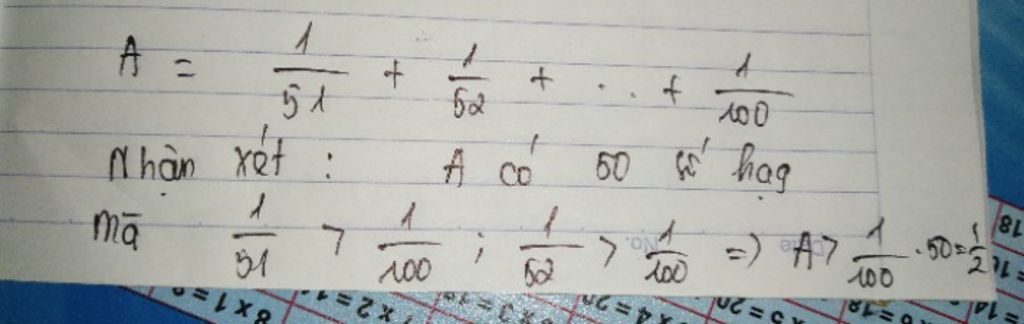 A = 1/51 + 1/52 + ... + 1/100
Nhận xét : A có 50 số hạg
mà 1/51 > 1/100 ; 1/52 > 1/100 => A > 1/100 . 50 = 1/2